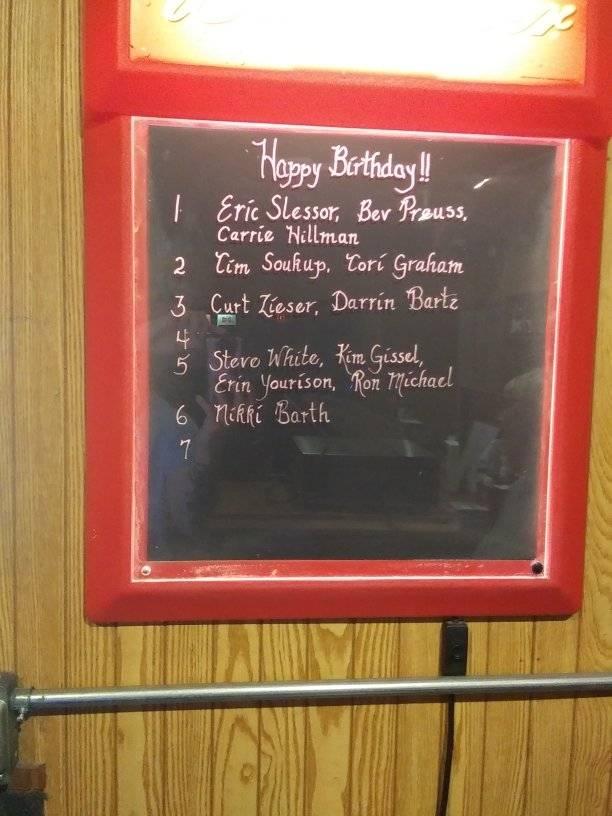 Happy Birthday!!
1 Eric Slessor, Bev Preuss,
Carrie Hillman
2 Tim Soukup, Tori Graham
3 Curt Zieser, Darrin Bartz
4
5 Steve White, Kim Gissel,
Erin Yourison, Ron Michael
6 Nikki Barth
7